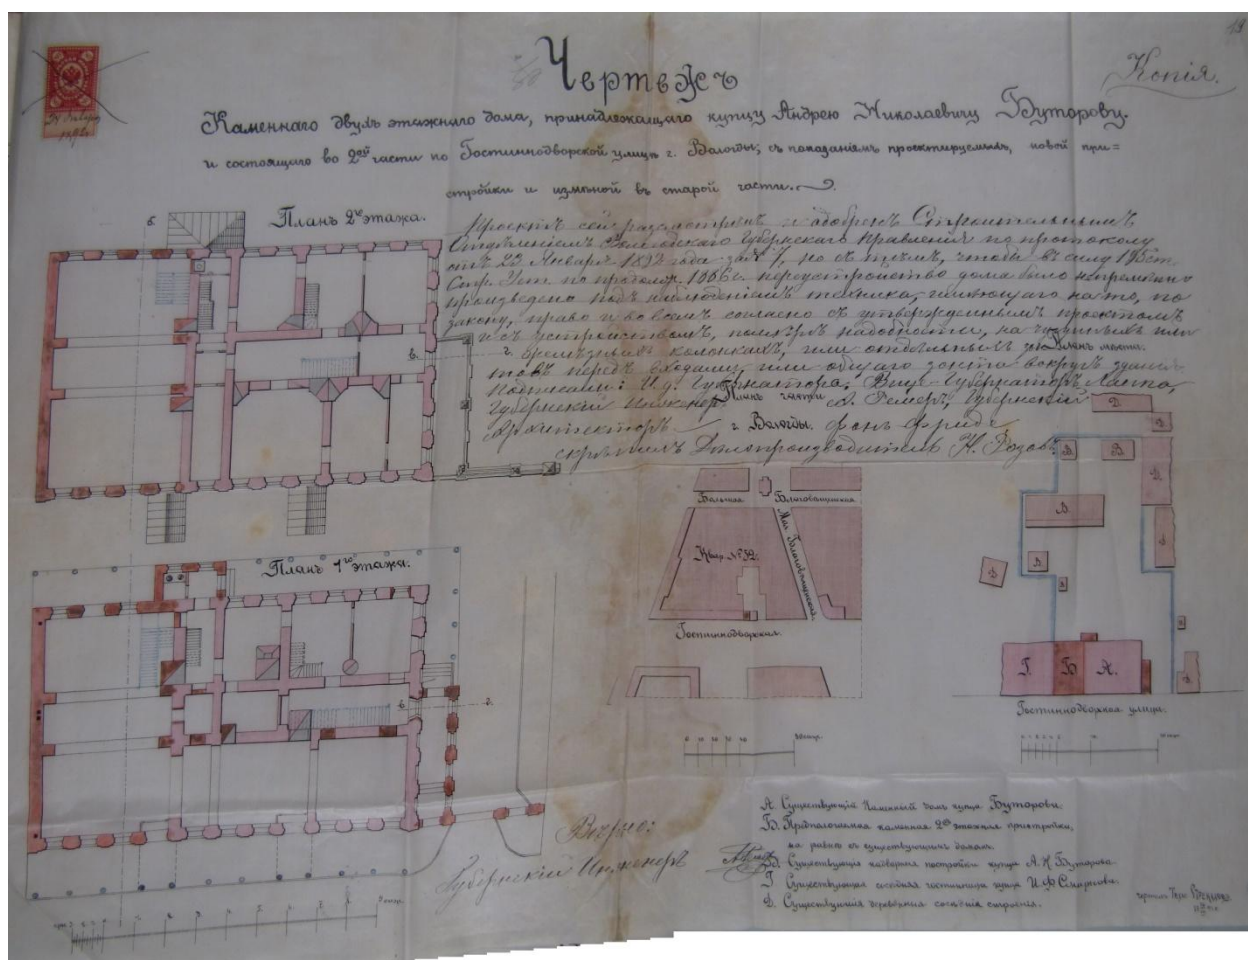 19
Копія.
Чертежъ
Каменнаго двухъ этажнаго дома, принадлежащаго купцу Андрею Николаевичу Буторову.
и состоящаго во 2ой части по Гостиннодворской улицѣ г. Вологды, съ показаніемъ проектируемыхъ, новой при=
стройки и измѣной въ старой части.
Планъ 2го этажа.
Проектъ сей разсмотрѣнъ и одобренъ Строительнымъ
Отдѣленіемъ Вологодскаго Губернскаго Правленія по протоколу
отъ 23 Января 1892 года за № 7, но съ тѣмъ, чтобы въ силу 195 ст.
Стр. Уст. по продолж. 1886 г. переустройство дома было непремѣнно
произведено подъ наблюденіемъ техника, имѣющаго на то, по
закону, право и во всемъ согласно съ утвержденнымъ проектомъ
и съ устройствомъ, помѣрѣ надобности, на чугунныхъ или
желѣзныхъ колонкахъ, или отдѣльныхъ зон
товъ передъ входами, или общаго зонта вокругъ зданія.
Подписали: И. д. Губернатора, Вице-Губернаторъ Лаппа,
Губернскій Инженеръ А. Ремеръ, Губернскій
Архитекторъ фонъ-Фриде
скрѣпилъ Дѣлопроизводитель Н. Розовъ
Планъ мѣста.
Планъ части
г. Вологды.
Большая Благовѣщенская
Квар. № 92.
Мал. Благовѣщенская
Гостиннодворская.
Д.
В
Г.
Б
А.
Гостиннодворная улица.
Планъ 1го этажа.
Вѣрно:
Губернскій Инженеръ
А. Существующій Каменный домъ купца Буторова.
Б. Предполагаемая каменная 2хъ этажная пристройка,
на равнѣ съ существующимъ домомъ.
В. Существующія надворныя постройки купца А. Н. Буторова.
Г Существующая сосѣдняя гостинница купца И. Ф. Смирнова.
Д. Существующія деревянныя сосѣднія строенія.